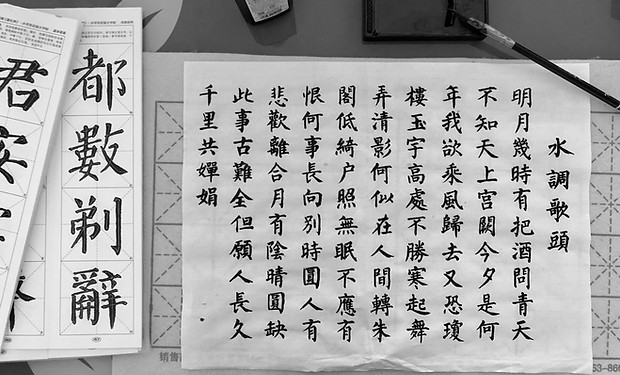 水調歌頭
明月幾時有把酒問青天
不知天上宫闕今夕是何
年我欲乘風歸去又恐瓊
樓玉宇高處不勝寒起舞
弄清影何似在人間轉朱
閣低綺户照無眠不應有
恨何事長向别時圓人有
悲歡離合月有陰晴圓缺
此事古難全但願人長久
千里共嬋娟
都數剃辭
君安
销售